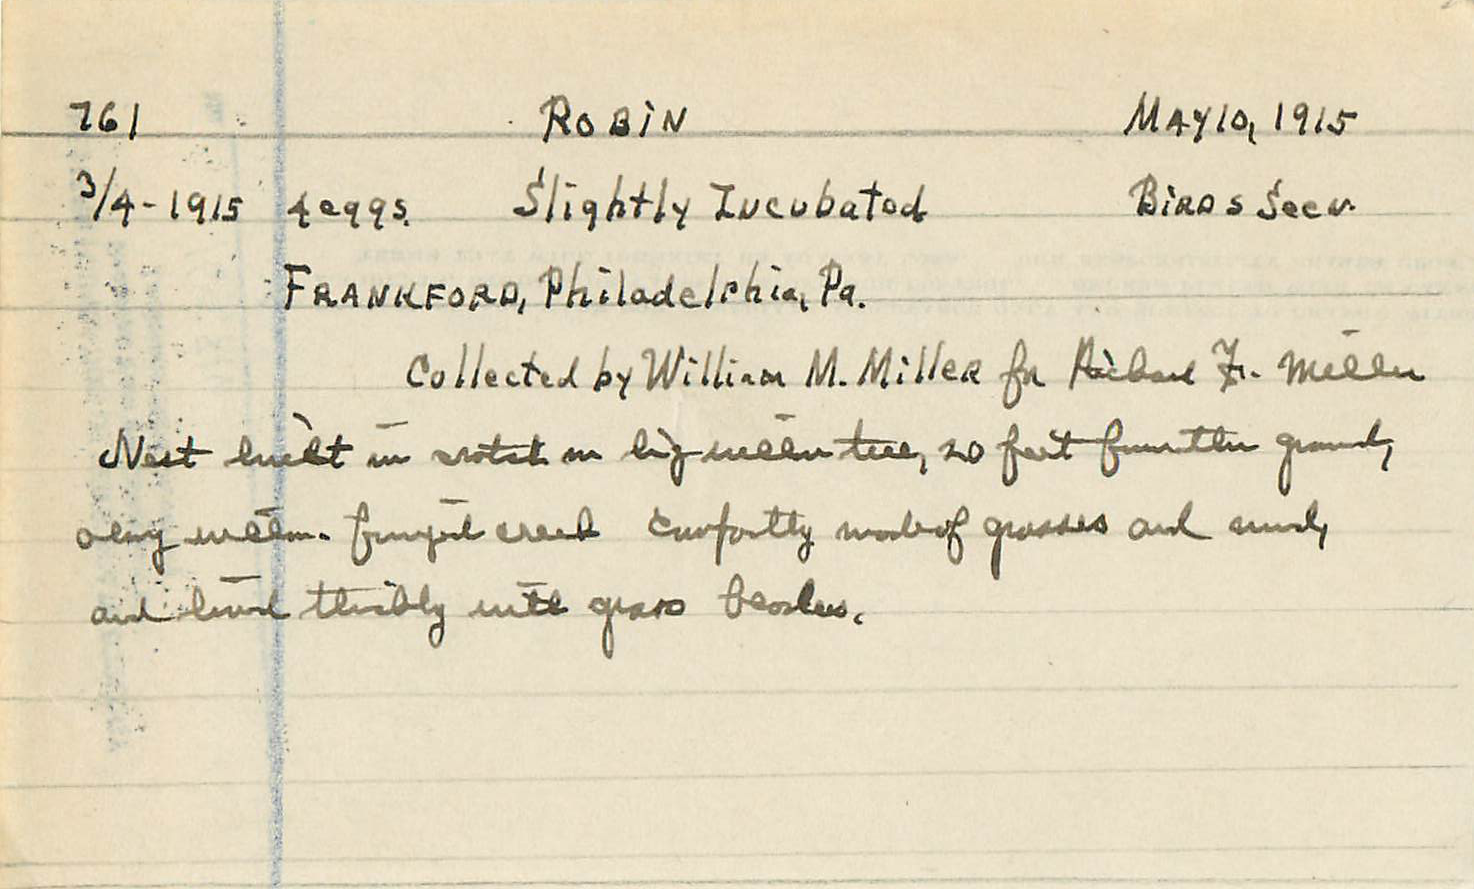 761 ROBIN MAY 10, 1915
3/4-1915 4 eggs. Slightly Incubated Birds Seen.
FRANKFORD, Philadelphia, Pa.
Collected by William M. Miller for Richard F. Miller
Nest built in crotch in big willow tree, 20 feet from the ground,
along Frankford creek made of grasses and mud,
and lined with grass blades.